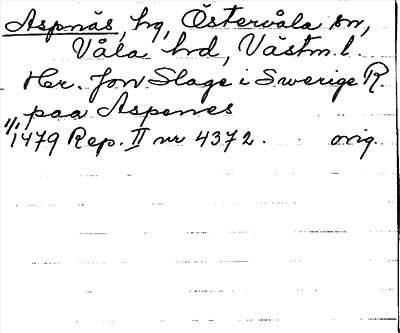 Aspnäs, hg, Östervåla sn,
Våla hd, Västm. l.
Her. Jon Slage i Swerige R.
paa Aspenes
1/1 1479 Rep. II nr 4372. orig.